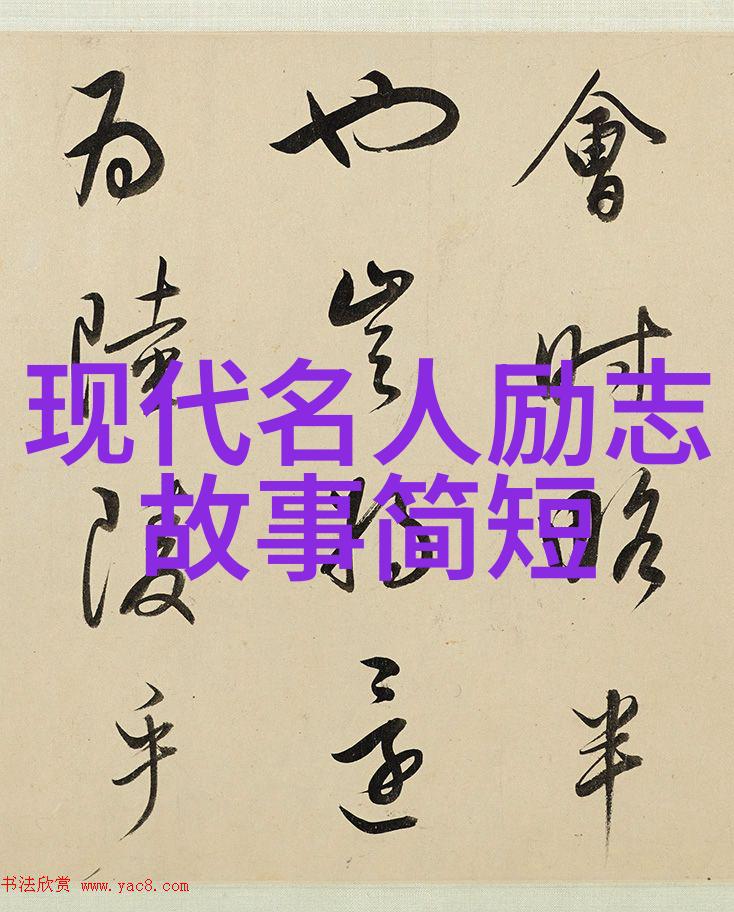 會時略半
也豈
為陸陵乎
现代名人励志
故事简短
书法欣赏 www.yac8.com